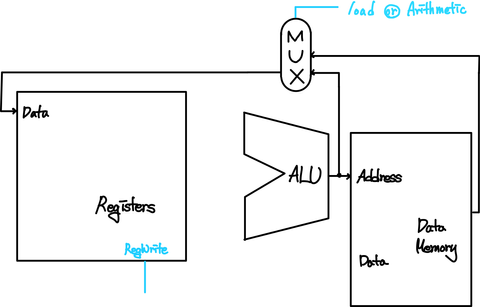 load or Arithmetic
MUX
Data
Registers
RegWrite
ALU
Address
Data
Memory
Data